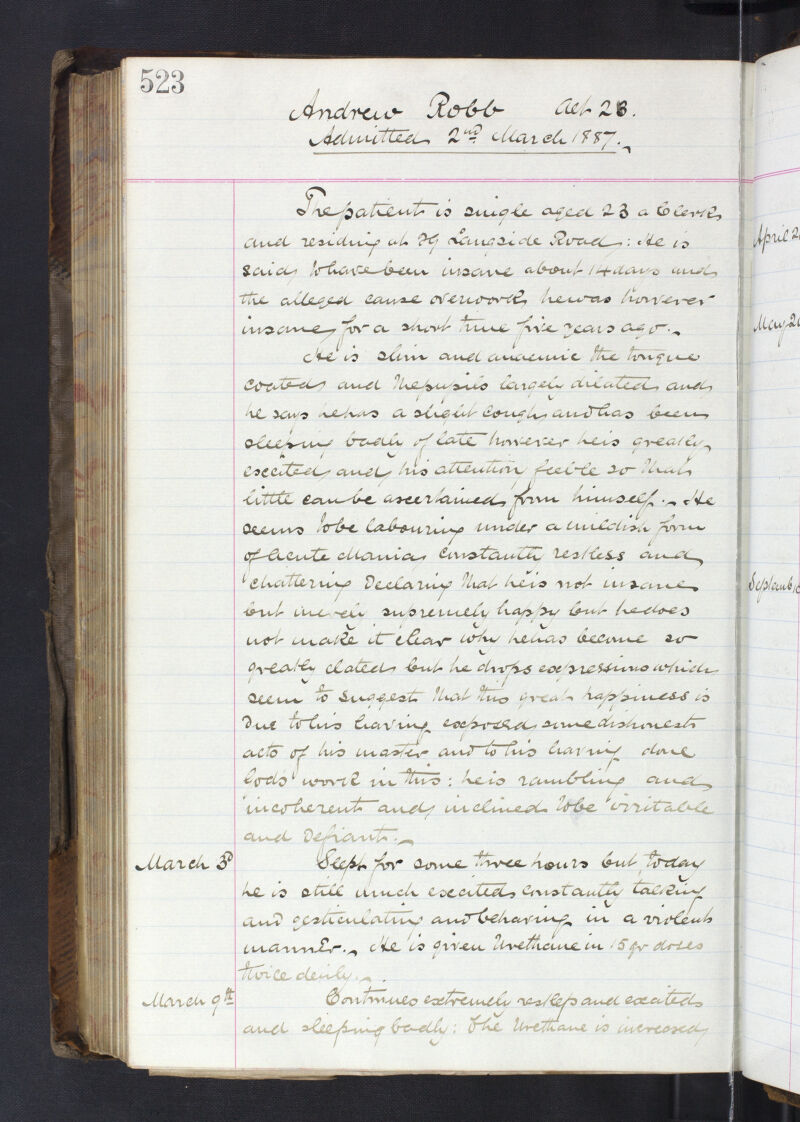 523
Andrew Robb Aet 23.
Admitted 2nd March 1887.
The patient is single aged 23 a Clerk
and residing at 79 Langside Road: He is
said to have been insane about 14 days and
the alleged cause overwork he was however
insane for a short time five years ago.
He is slim and anaemic the tongue
coated and the pupils largely dilated and
he says he has a slight cough and has been
sleeping badly of late however he is greatly
excited and his attention feeble so that
little can be ascertained from himself. He
seems to be labouring under a mildish form
of Acute Mania constantly restless and
chattering Declaring that he is not insane
but merely supremely happy but he does
not make it clear why he has become so
greatly elated but he drops expressions which
seem to suggest that this great happiness is
Due to his having exposed some dishonest
acts of his master and to his having done
Gods work in this: he is rambling and
incoherent and inclined to be irritable
and Defiant.
March 3d Slept for some three hours but today
he is still much excited constantly talking
and gesticulating and behaving in a violent
manner. He is given Urethane in 15 gr doses
twice daily.
March 9th Continues extremely restless and excited
and sleeping badly: The Urethane is increased
April 2
May 2
Septemb 1